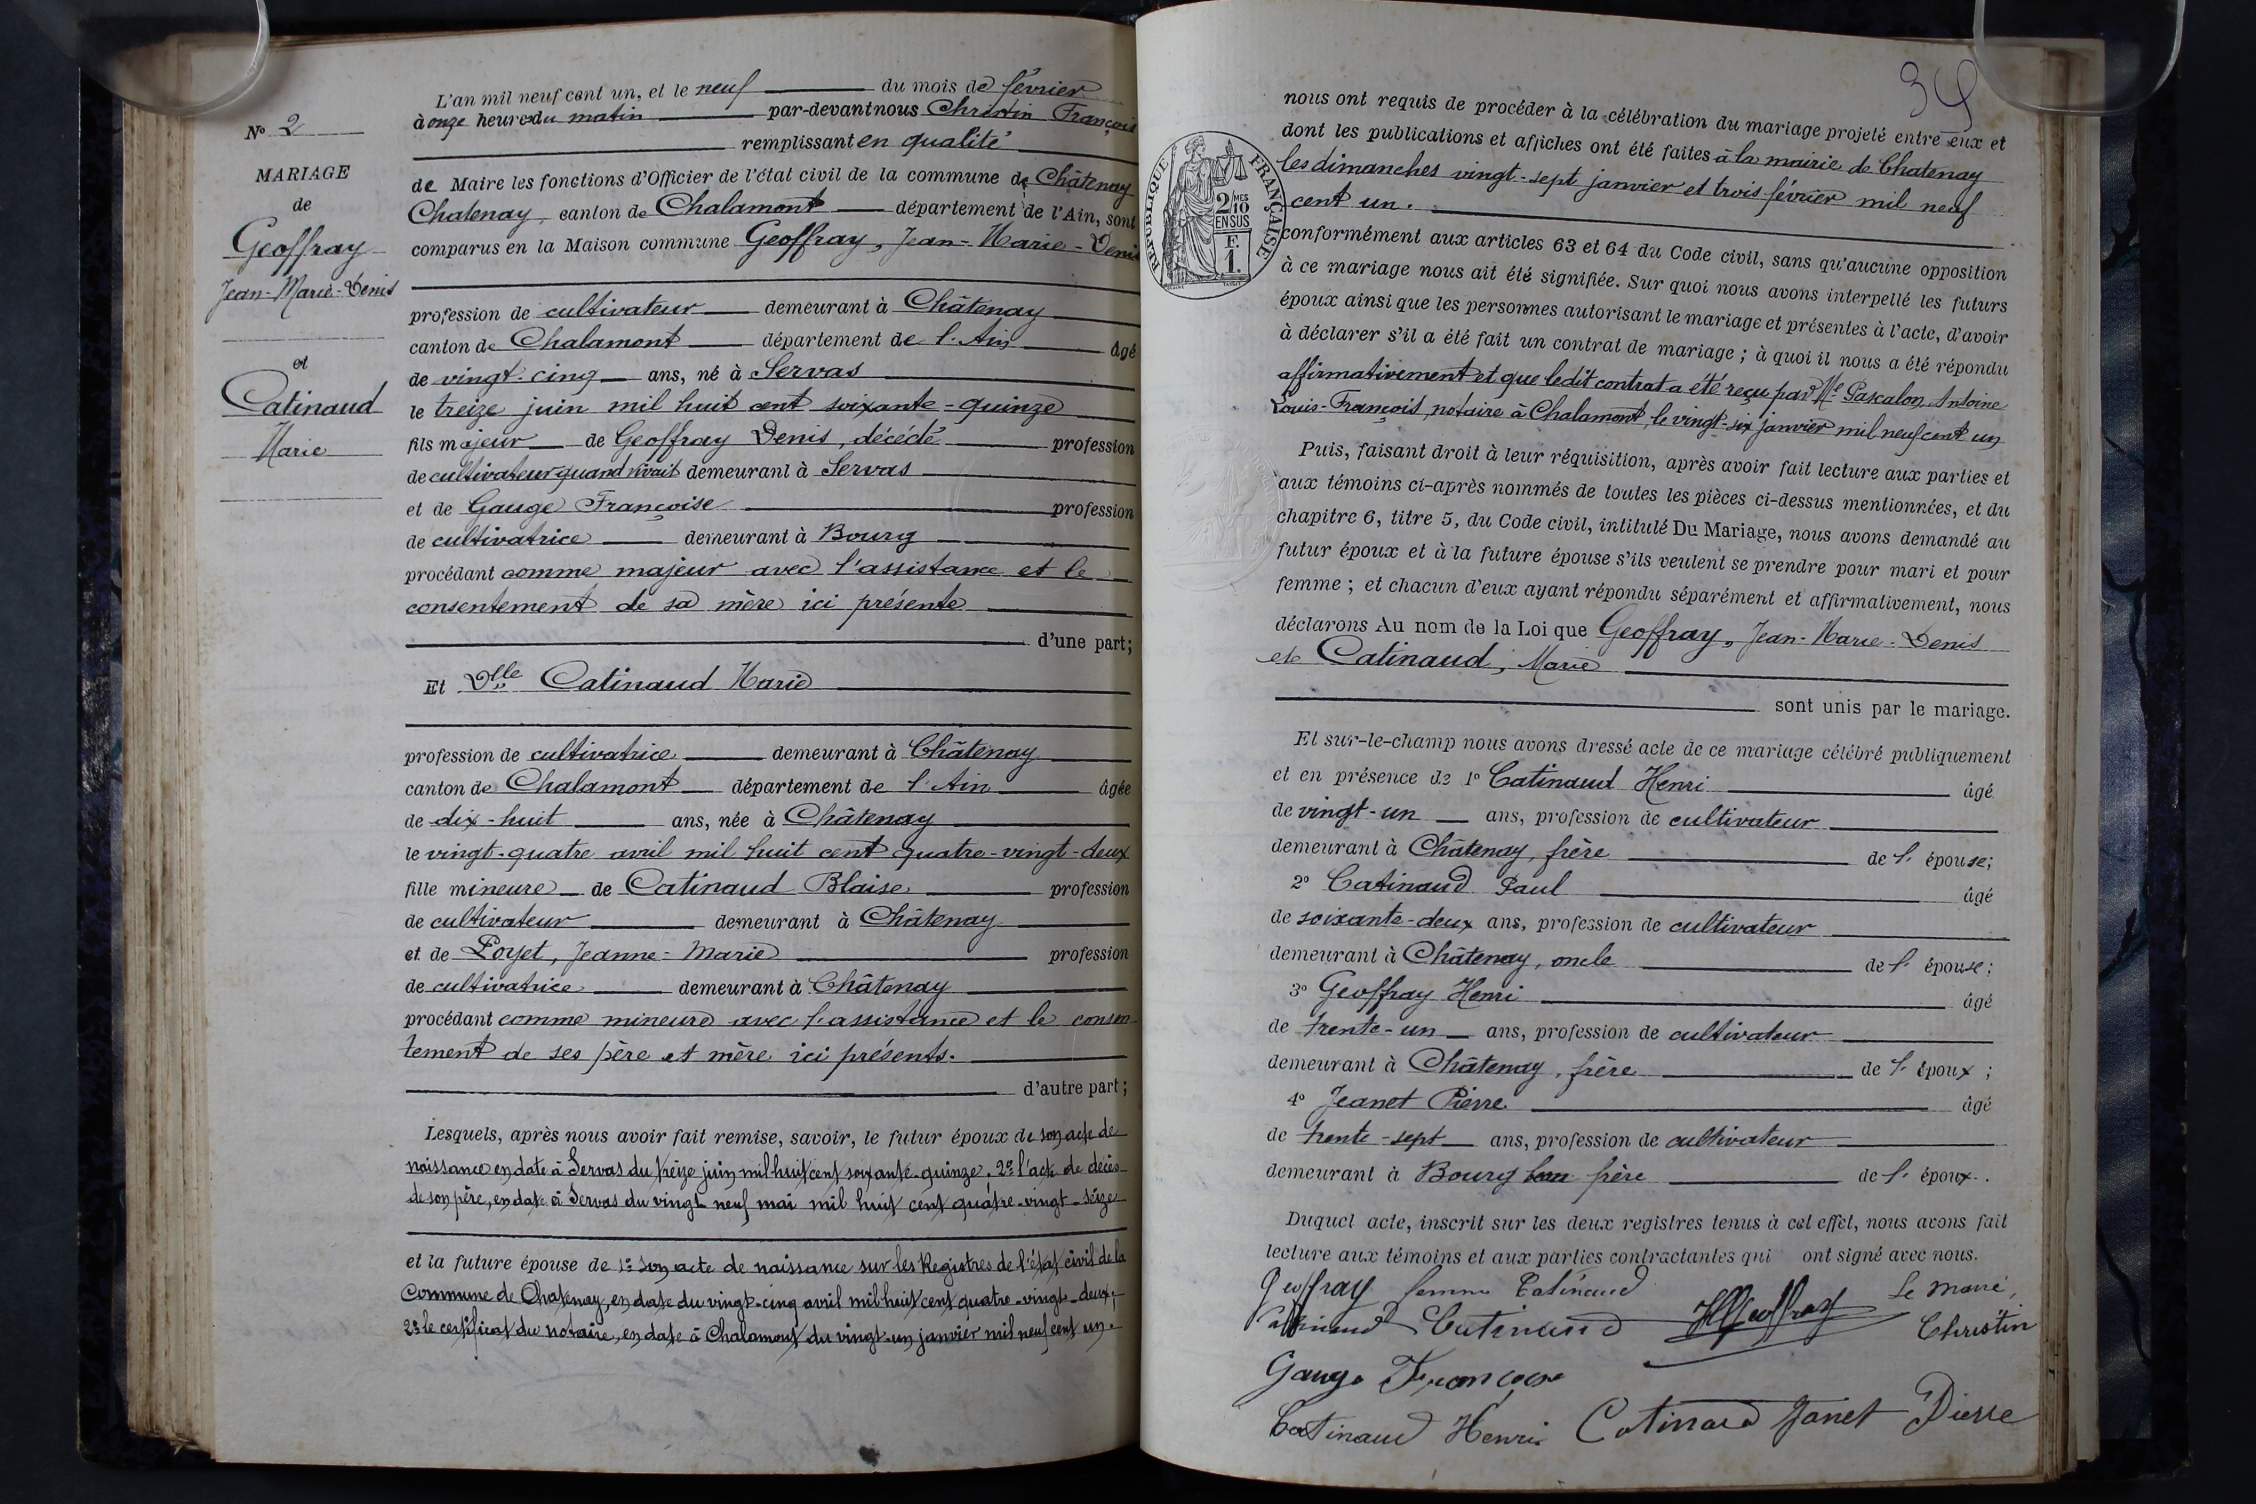 N° 2
MARIAGE
de
Geoffray
Jean-Marie-Denis
et
Catinaud
Marie
L'an mil neuf cent un, et le neuf du mois de février
à onze heures du matin par-devant nous Christin François
remplissant en qualité
de Maire les fonctions d'Officier de l'état civil de la commune de Châtenay
Chatenay, canton de Chalamont département de l'Ain, sont
comparus en la Maison commune Geoffray, Jean-Marie-Denis
profession de cultivateur demeurant à Châtenay
canton de Chalamont département de l'Ain âgé
de vingt-cinq ans, né à Servas
le treize juin mil huit cent soixante-quinze
fils majeur de Geoffray Denis, décédé profession
de cultivateur quand vivait demeurant à Servas
et de Gauge Françoise profession
de cultivatrice demeurant à Bourg
procédant comme majeur avec l'assistance et le
consentement de sa mère ici présente
d'une part;
Et Dlle Catinaud Marie
profession de cultivatrice demeurant à Châtenay
canton de Chalamont département de l'Ain âgée
de dix-huit ans, née à Châtenay
le vingt-quatre avril mil huit cent quatre-vingt-deux
fille mineure de Catinaud Blaise profession
de cultivateur demeurant à Châtenay
et de Poyet, Jeanne-Marie profession
de cultivatrice demeurant à Châtenay
procédant comme mineure avec l'assistance et le consen-
tement de ses père et mère ici présents.
d'autre part;
Lesquels, après nous avoir fait remise, savoir, le futur époux de son acte de
naissance en date à Servas du treize juin mil huit cent soixante-quinze, 2° l'acte de décès
de son père, en date à Servas du vingt-neuf mai mil huit cent quatre-vingt-seize
et la future épouse de 1° son acte de naissance sur les Registres de l'état civil de la
Commune de Chatenay, en date du vingt-cinq avril mil huit cent quatre-vingt-deux;
2° le certificat du notaire, en date à Chalamont du vingt-un janvier mil neuf cent un.
39
RÉPUBLIQUE FRANÇAISE
2/10 MES
EN SUS
F.
1.
nous ont requis de procéder à la célébration du mariage projeté entre eux et
dont les publications et affiches ont été faites à la mairie de Chatenay
les dimanches vingt-sept janvier et trois février mil neuf
cent un.
conformément aux articles 63 et 64 du Code civil, sans qu'aucune opposition
à ce mariage nous ait été signifiée. Sur quoi nous avons interpellé les futurs
époux ainsi que les personnes autorisant le mariage et présentes à l'acte, d'avoir
à déclarer s'il a été fait un contrat de mariage; à quoi il nous a été répondu
affirmativement et que ledit contrat a été reçu par Me Pascalon, Antoine
Louis-François, notaire à Chalamont, le vingt-six janvier mil neuf cent un
Puis, faisant droit à leur réquisition, après avoir fait lecture aux parties et
aux témoins ci-après nommés de toutes les pièces ci-dessus mentionnées, et du
chapitre 6, titre 5, du Code civil, intitulé Du Mariage, nous avons demandé au
futur époux et à la future épouse s'ils veulent se prendre pour mari et pour
femme; et chacun d'eux ayant répondu séparément et affirmativement, nous
déclarons Au nom de la Loi que Geoffray, Jean-Marie-Denis
et Catinaud, Marie
sont unis par le mariage.
Et sur-le-champ nous avons dressé acte de ce mariage célébré publiquement
et en présence de 1° Catinaud Henri âgé
de vingt-un ans, profession de cultivateur
demeurant à Châtenay, frère de l'épouse;
2° Catinaud Paul âgé
de soixante-deux ans, profession de cultivateur
demeurant à Châtenay, oncle de l'épouse;
3° Geoffray Henri âgé
de trente-un ans, profession de cultivateur
demeurant à Châtenay, frère de l'époux;
4° Jeanet Pierre âgé
de trente-sept ans, profession de cultivateur
demeurant à Bourg beau frère de l'époux.
Duquel acte, inscrit sur les deux registres tenus à cet effet, nous avons fait
lecture aux témoins et aux parties contractantes qui ont signé avec nous.
Geoffray femme Catinaud Le maire,
Catinaud Catinaud Geoffray Christin
Gauge Françoise
Catinaud Henri Catinaud Janet Pierre